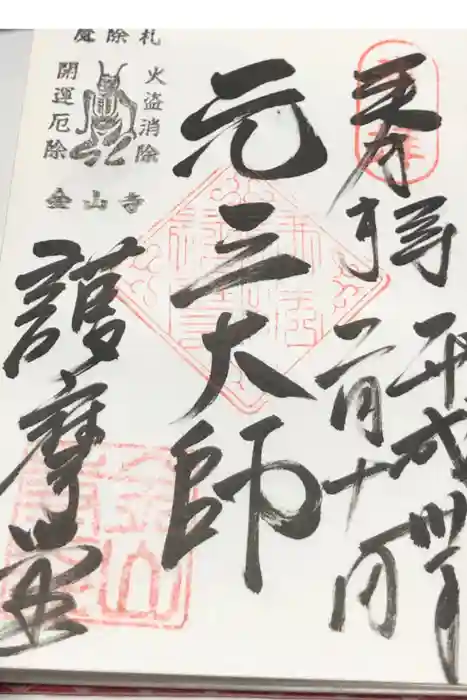 奉拝
平成
二月十日
元三大師
護摩堂
魔除札
火盗消除
開運厄除
金山寺